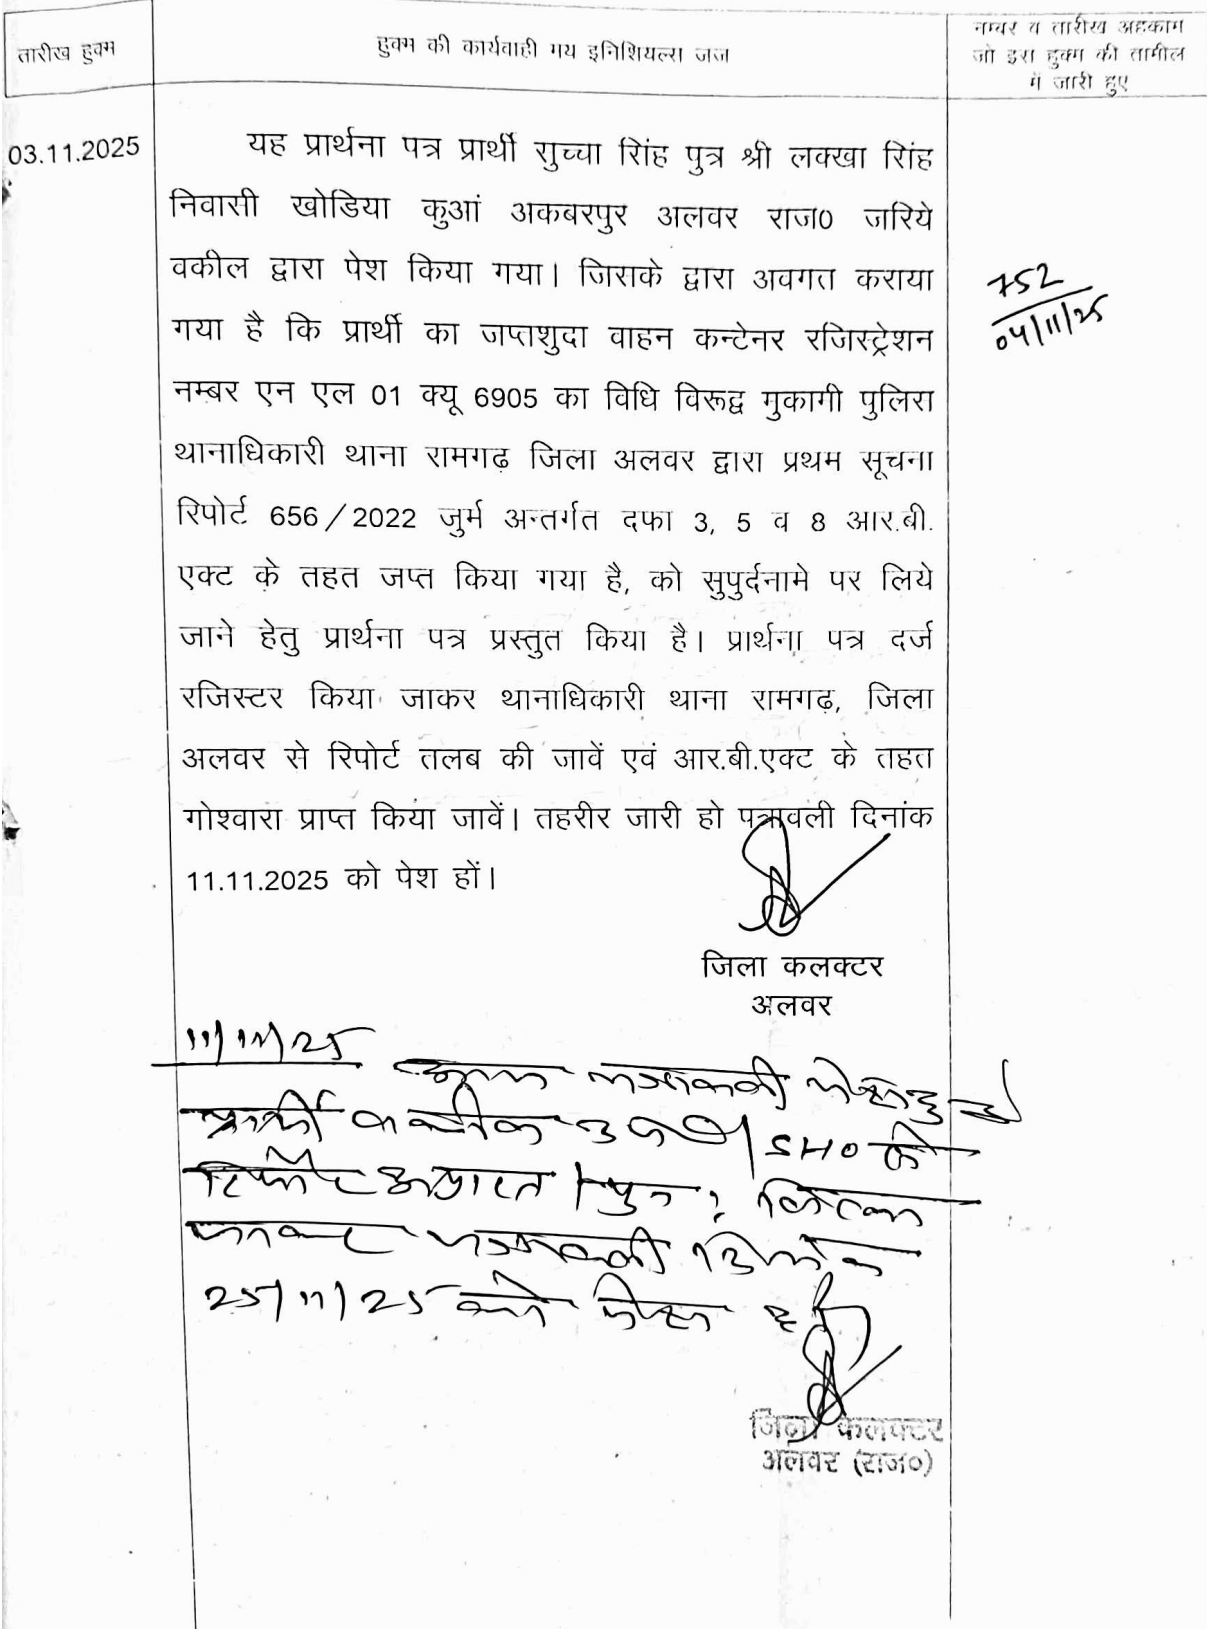 तारीख हुक्म
हुक्म की कार्यवाही मय इनिशियल्स जज
नम्बर व तारीख अहकाम
जो इस हुक्म की तामील
में जारी हुए
03.11.2025
यह प्रार्थना पत्र प्रार्थी सुच्चा सिंह पुत्र श्री लक्खा सिंह
निवासी खोडिया कुआं अकबरपुर अलवर राज0 जरिये
वकील द्वारा पेश किया गया। जिसके द्वारा अवगत कराया
गया है कि प्रार्थी का जप्तशुदा वाहन कन्टेनर रजिस्ट्रेशन
नम्बर एन एल 01 क्यू 6905 का विधि विरूद्व मुकामी पुलिस
थानाधिकारी थाना रामगढ़ जिला अलवर द्वारा प्रथम सूचना
रिपोर्ट 656/2022 जुर्म अन्तर्गत दफा 3, 5 व 8 आर.बी.
एक्ट के तहत जप्त किया गया है, को सुपुर्दनामे पर लिये
जाने हेतु प्रार्थना पत्र प्रस्तुत किया है। प्रार्थना पत्र दर्ज
रजिस्टर किया जाकर थानाधिकारी थाना रामगढ़, जिला
अलवर से रिपोर्ट तलब की जावें एवं आर.बी.एक्ट के तहत
गोश्वारा प्राप्त किया जावें। तहरीर जारी हो पत्रावली दिनांक
11.11.2025 को पेश हों।
752
04/11/25
जिला कलक्टर
अलवर
11/11/25
आज पत्रावली पेश हुई
प्रार्थी वकील उप0। SHO की
रिपोर्ट अप्राप्त। पुनः
पत्रावली दिनांक
25/11/25 को पेश हो
जिला कलक्टर
अलवर (राज०)